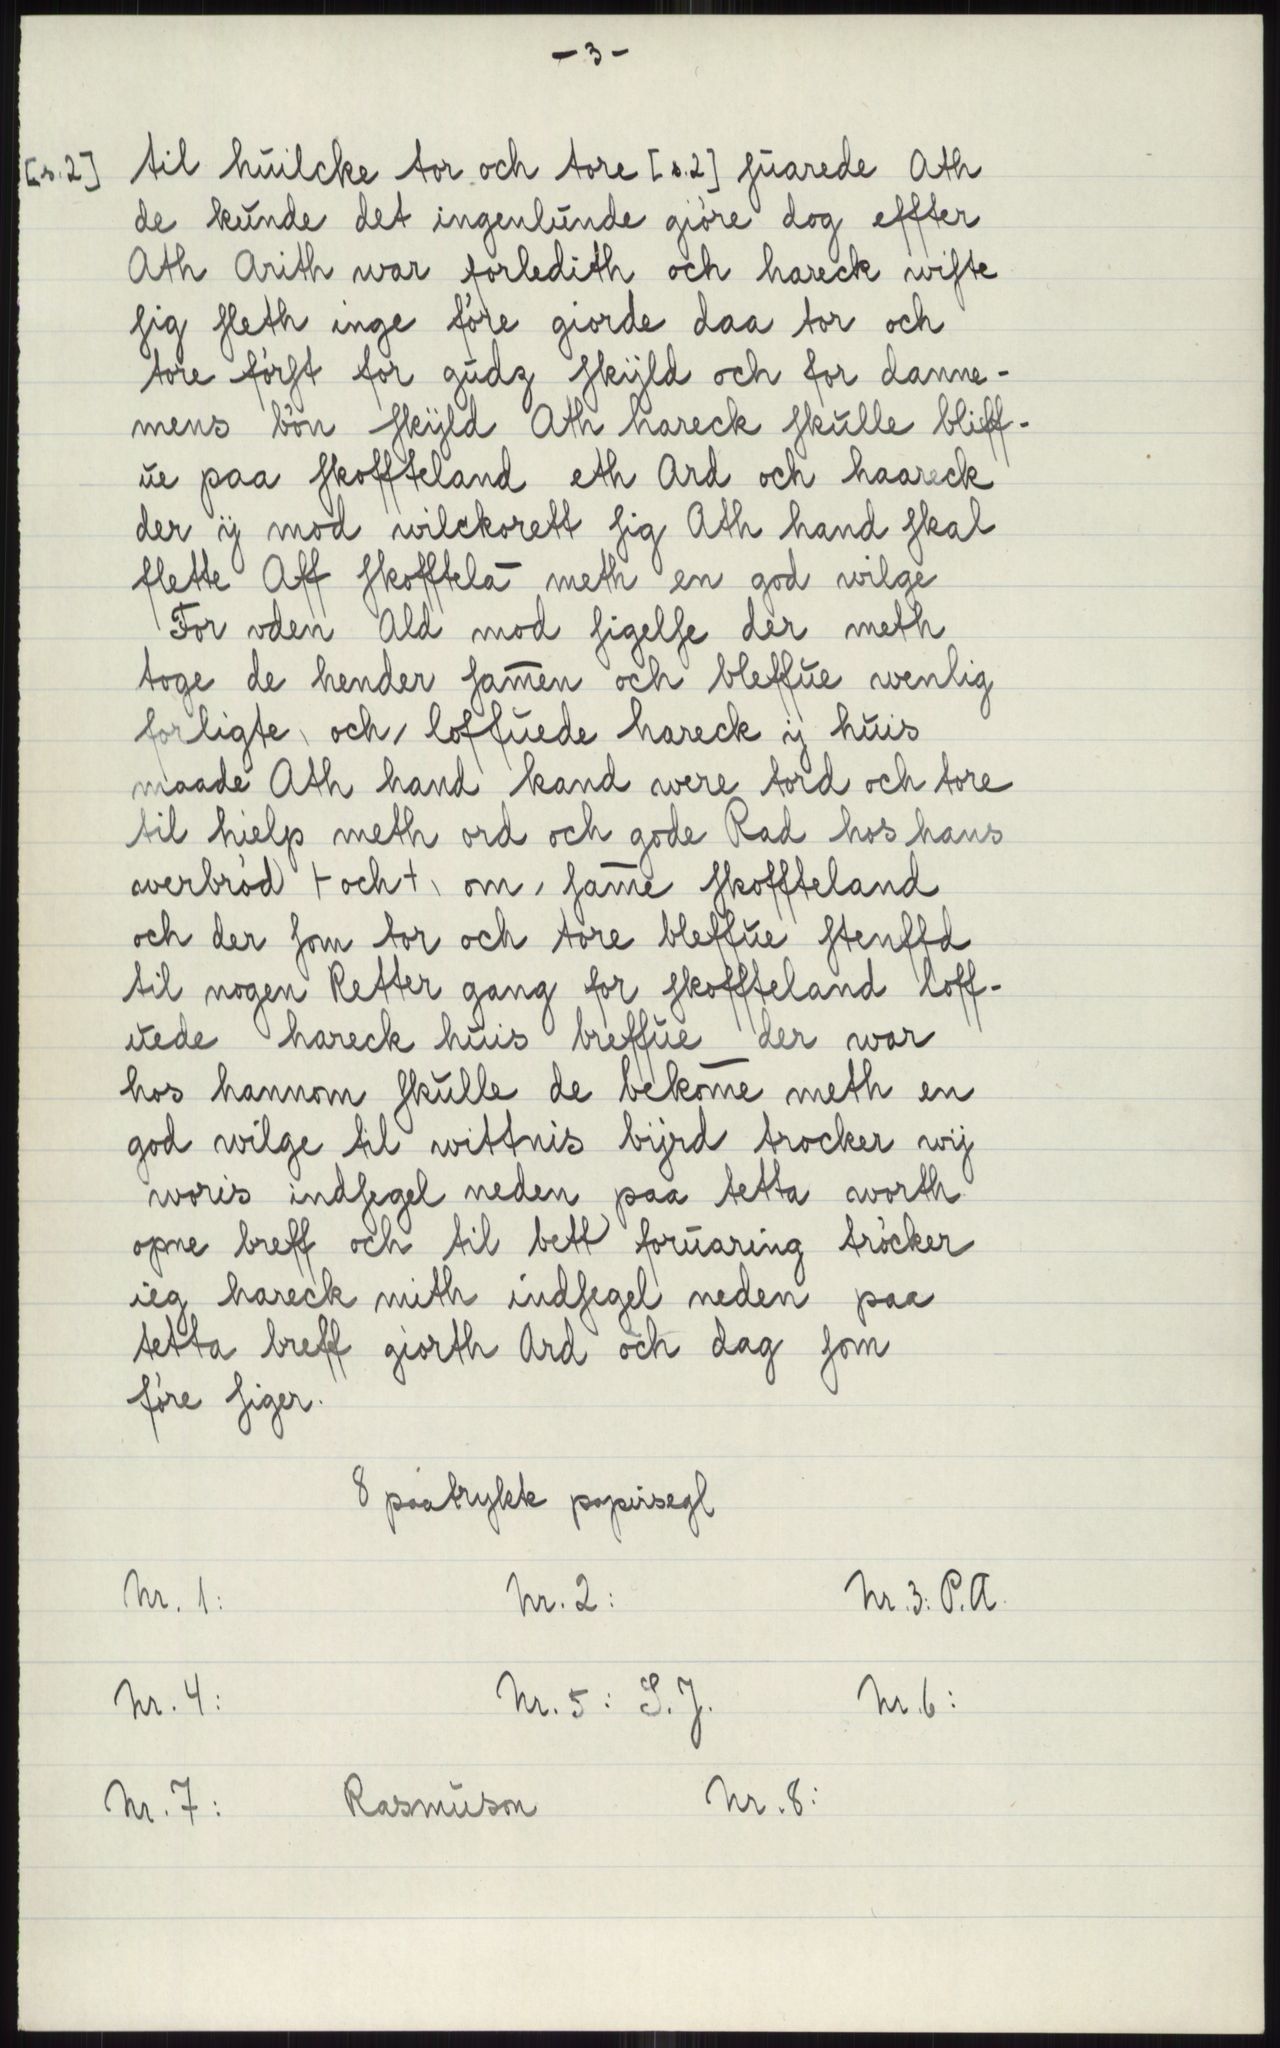 - 3 -
[s.2] til huilcke tor och tore [s.2] suarede Ath
de kunde det ingenlunde giøre dog effter
Ath Arith war forledith och hareck wiste
sig sleth inge føre giorde daa tor och
tore først for gudz skÿld och for danne-
mens bøn skÿld Ath hareck skulle blieff-
ue paa skoffteland eth Ard och haareck
der ÿ mod wilckorett sig Ath hand skal
flette Aff skofftelā meth en god wilge
For vden Ald mod sigelse der meth
toge de hender sam̄en och bleffue wenlig
forligte \ och / loffuede hareck ÿ huis
maade Ath hand kand were tord och tore
til hielp meth ord och gode Rad hos hans
werbrød ⊢ och ⊣ \ om / sam̄e skoffteland
och der som tor och tore bleffue stenffd
til nogen Retter gang for skoffteland loff-
uede hareck huis breffue der war
hos hannom skulle de bekom̄e meth en
god wilge til wittnis bijrd trocker wij
woris indsegel neden paa tetta worth
opne breff och til bett foruaring trøcker
ieg hareck mith indsegel neden paa
tetta breff giorth Ard och dag som
føre siger.
8 paatrykte papirsegl
Nr. 1: Nr. 2: Nr. 3: P.A.
Nr. 4: Nr. 5: S.J. Nr. 6:
Nr. 7: Rasmuson Nr. 8: